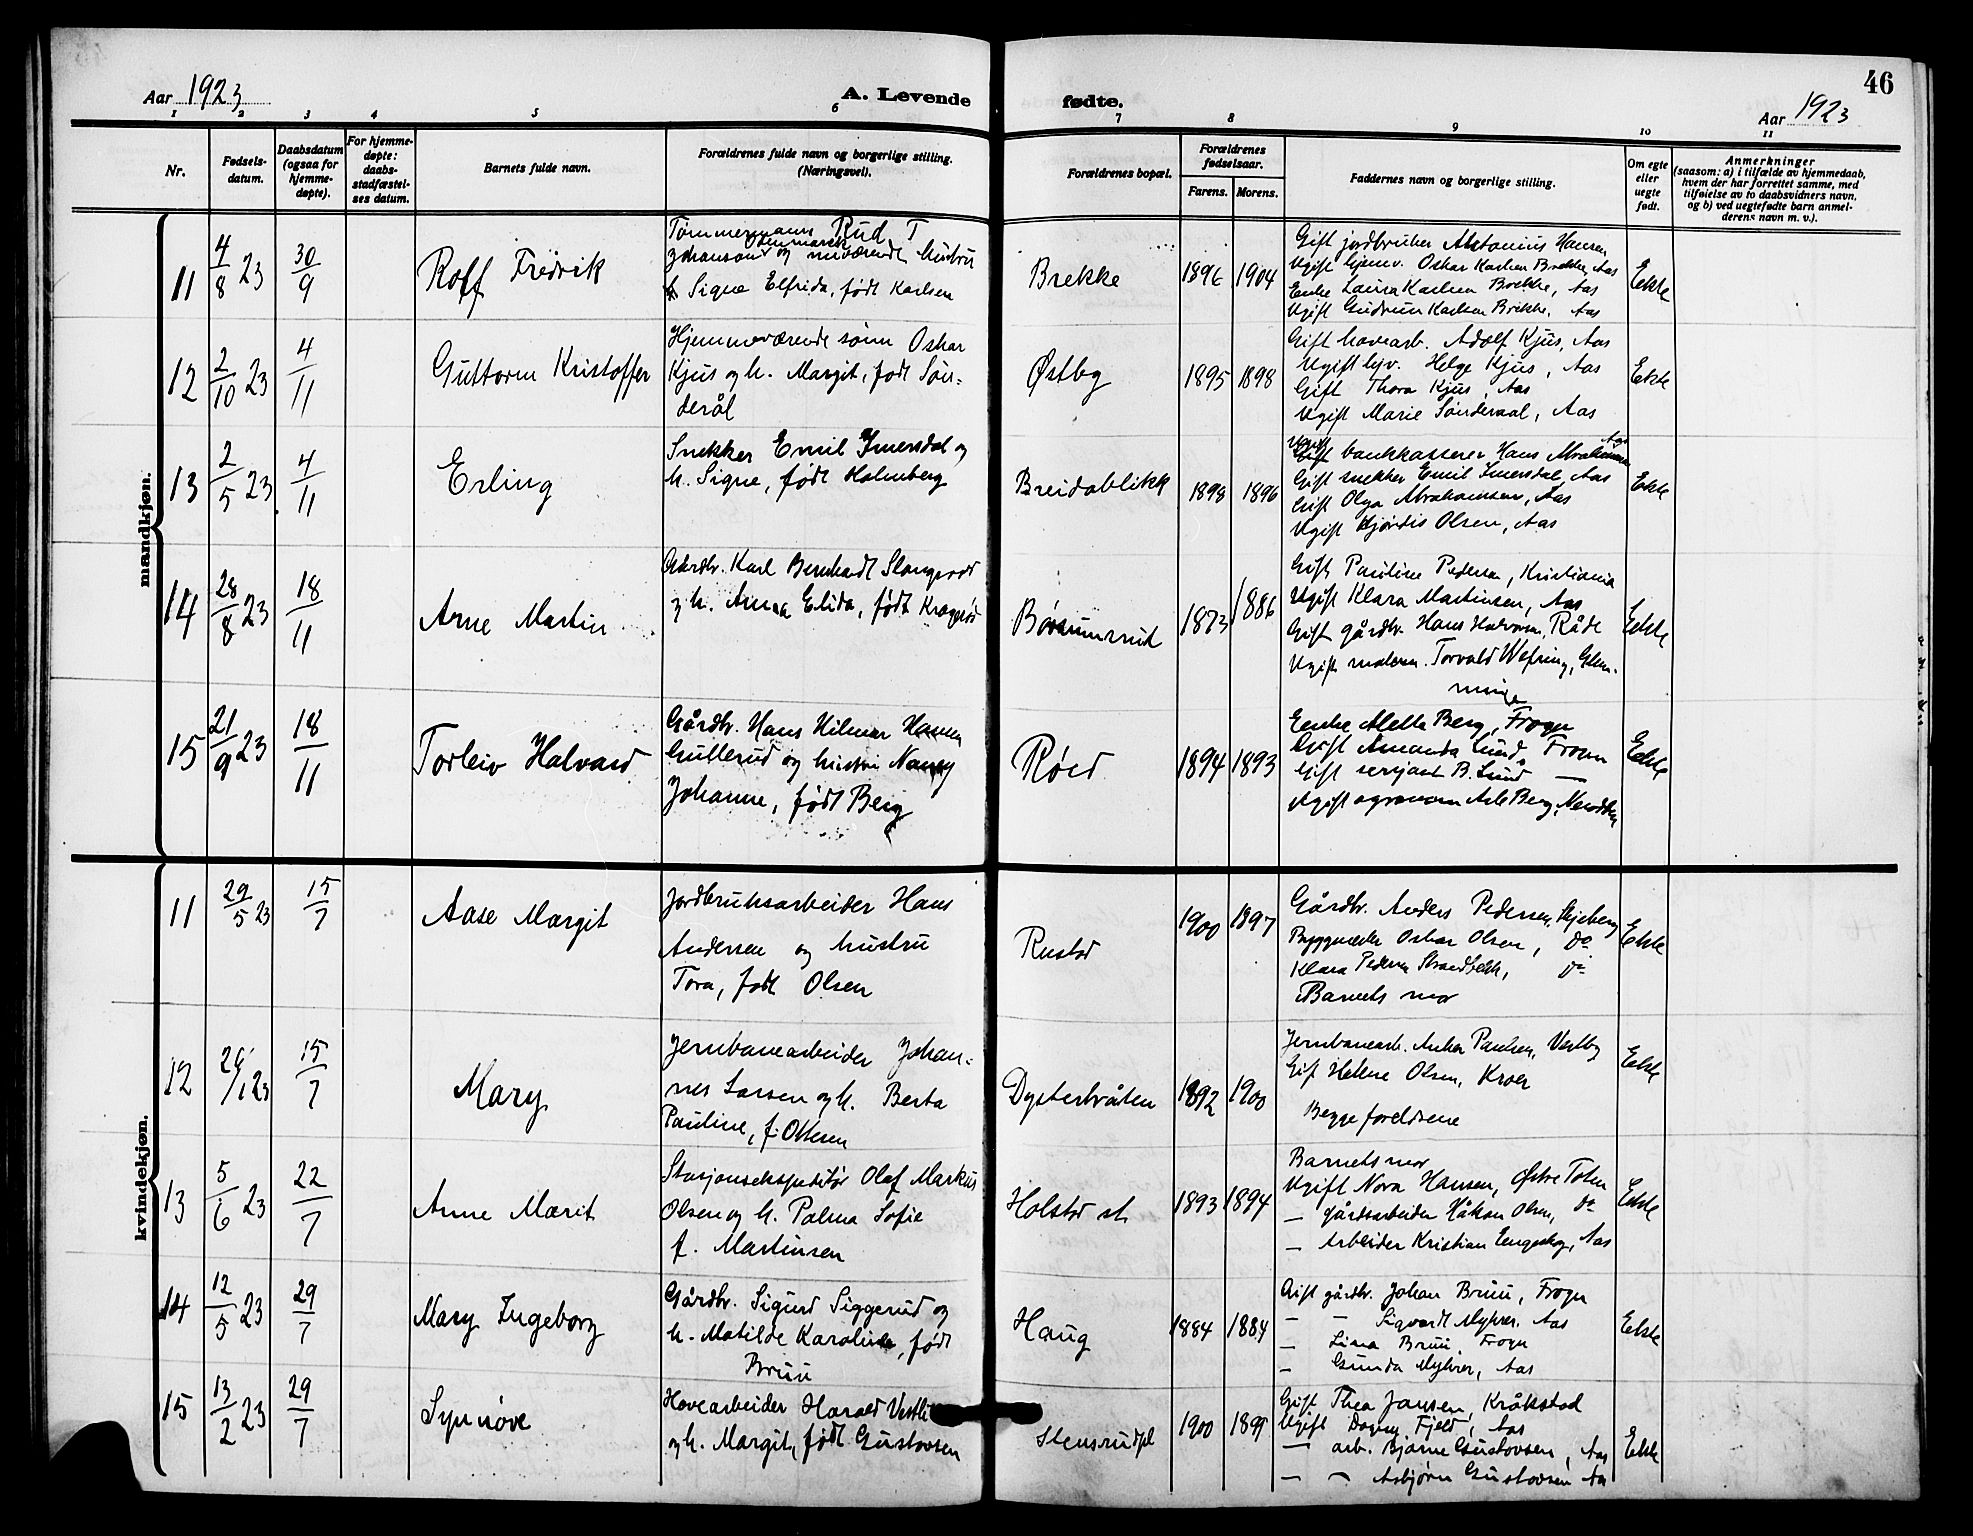 46
Aar 1923
A. Levende fødte.
Aar 1923
1 2 3 4 5 6 7 8 9 10 11
Nr.
Fødsels-
datum.
Daabsdatum
(ogsaa for
hjemme-
døpte).
For hjemme-
døpte:
daabs-
stadfæstel-
ses datum.
Barnets fulde navn.
Forældrenes fulde navn og borgerlige stilling.
(Næringsvei).
Forældrenes bopæl.
Forældrenes
fødselsaar.
Farens. Morens.
Faddernes navn og borgerlige stilling.
Om egte
eller
uegte
født.
Anmerkninger
(saasom: a) i tilfælde av hjemmedaab,
hvem der har forrettet samme, med
tilføielse av to daabsvidners navn,
og b) ved uegtefødte barn anmel-
derens navn m. v.).
mandkjøn.
11 4/8 23 30/9 Rolf Fredrik
Tømmermann Rud T
Johanson Denmark og nuværende hustru
Signe Elfrida, født Karlsen
Brekke 1896 1904
Gift jordbruker Antonius Hansen
Ugift hjemv. Oskar Karlsen Brekke, Aas
Enke Laura Karlsen Brekke, Aas
Ugift Gudrun Karlsen Brekke, Aas
Ekte
12 2/10 23 4/11 Guttorm Kristoffer
Hjemmeværende sønn Oskar
Kjus og h. Margit, født Søn-
derål
Østby 1895 1898
Gift havearb. Adolf Kjus, Aas
Ugift hjv. Helge Kjus, Aas
Gift Thora Kjus, Aas
Ugift Marie Sønderaal, Aas
Ekte
13 2/5 23 4/11 Erling
Snekker Emil Imersdal og
h. Signe, født Holmberg
Breidablikk 1898 1896
Ugift bankkasserer Hans Abrahamsen Aas
Gift snekker Emil Imersdal, Aas
Gift Olga Abrahamsen, Aas
Ugift Hjørdis Olsen, Aas
Ekte
14 28/8 23 18/11 Arne Martin
Gårdbr. Karl Bernhardt Slangsvold
og h. Anna Elida, født Kragerød
Børsumsrud 1873 1886
Gift Pauline Pedersen, Kristiania
Ugift Klara Martinsen, Aas
Gift gårdbr. Hans Halvorsen, Råde
Ugift malersv. Torvald Wefring, Glem-
minge
Ekte
15 21/9 23 18/11 Torleiv Halvard
Gårdbr. Hans Hilmar Hansen
Gullerud og hustru Nancy
Johanne, født Berg
Røed 1894 1893
Enke Alette Berg, Frogn
Gift Amanda Lund, Frogn
Gift serjant B. Lund —
Ugift agronom Atle Berg, Nesodden
Ekte
kvindekjøn.
11 29/5 23 15/7 Aase Margit
Jordbruksarbeider Hans
Andersen og hustru
Tora, født Olsen
Rustad 1900 1897
Gårdbr. Anders Pedersen, Skjeberg
Byggmester Oskar Olsen, do
Klara Pedersen Strandbekk, do
Barnets mor
Ekte
12 26/1 23 15/7 Mary
Jernbanearbeider Johan-
nes Larsen og h. Berta
Pauline, f. Ottesen
Dysterbråten 1892 1900
Jernbanearb. Anker Paulsen, Vestby
Gift Helene Olsen, Kroer
Begge foreldrene
Ekte
13 5/6 23 22/7 Anne Marit
Stasjonsekspeditør Olaf Markus
Olsen og h. Palma Sofie
f. Martinsen
Holstad st. 1893 1894
Barnets mor
Ugift Nora Hansen, Østre Toten
— gårdsarbeider Håkon Olsen, do
— Arbeider Kristian Engeskog, Aas
Ekte
14 12/5 23 29/7 Mary Ingeborg
Gårdbr. Sigurd Siggerud og
h. Matilde Karoline, født
Bruu
Haug 1884 1884
Gift gårdbr. Johan Bruu, Frogn
— — Sigvardt Myhrer, Aas
— Lina Bruu, Frogn
— Gunda Myhrer, Aas
Ekte
15 13/2 23 29/7 Synnøve
Havearbeider Harald Vestli
og h. Margit, født Gustavsen
Stensrudpl 1900 1895
Gift Thea Jansen, Kråkstad
Ugift Dagny Fjeld, Aas
— arb. Bjarne Gustavsen, Aas
— — Asbjørn Gustavsen Aas
Ekte